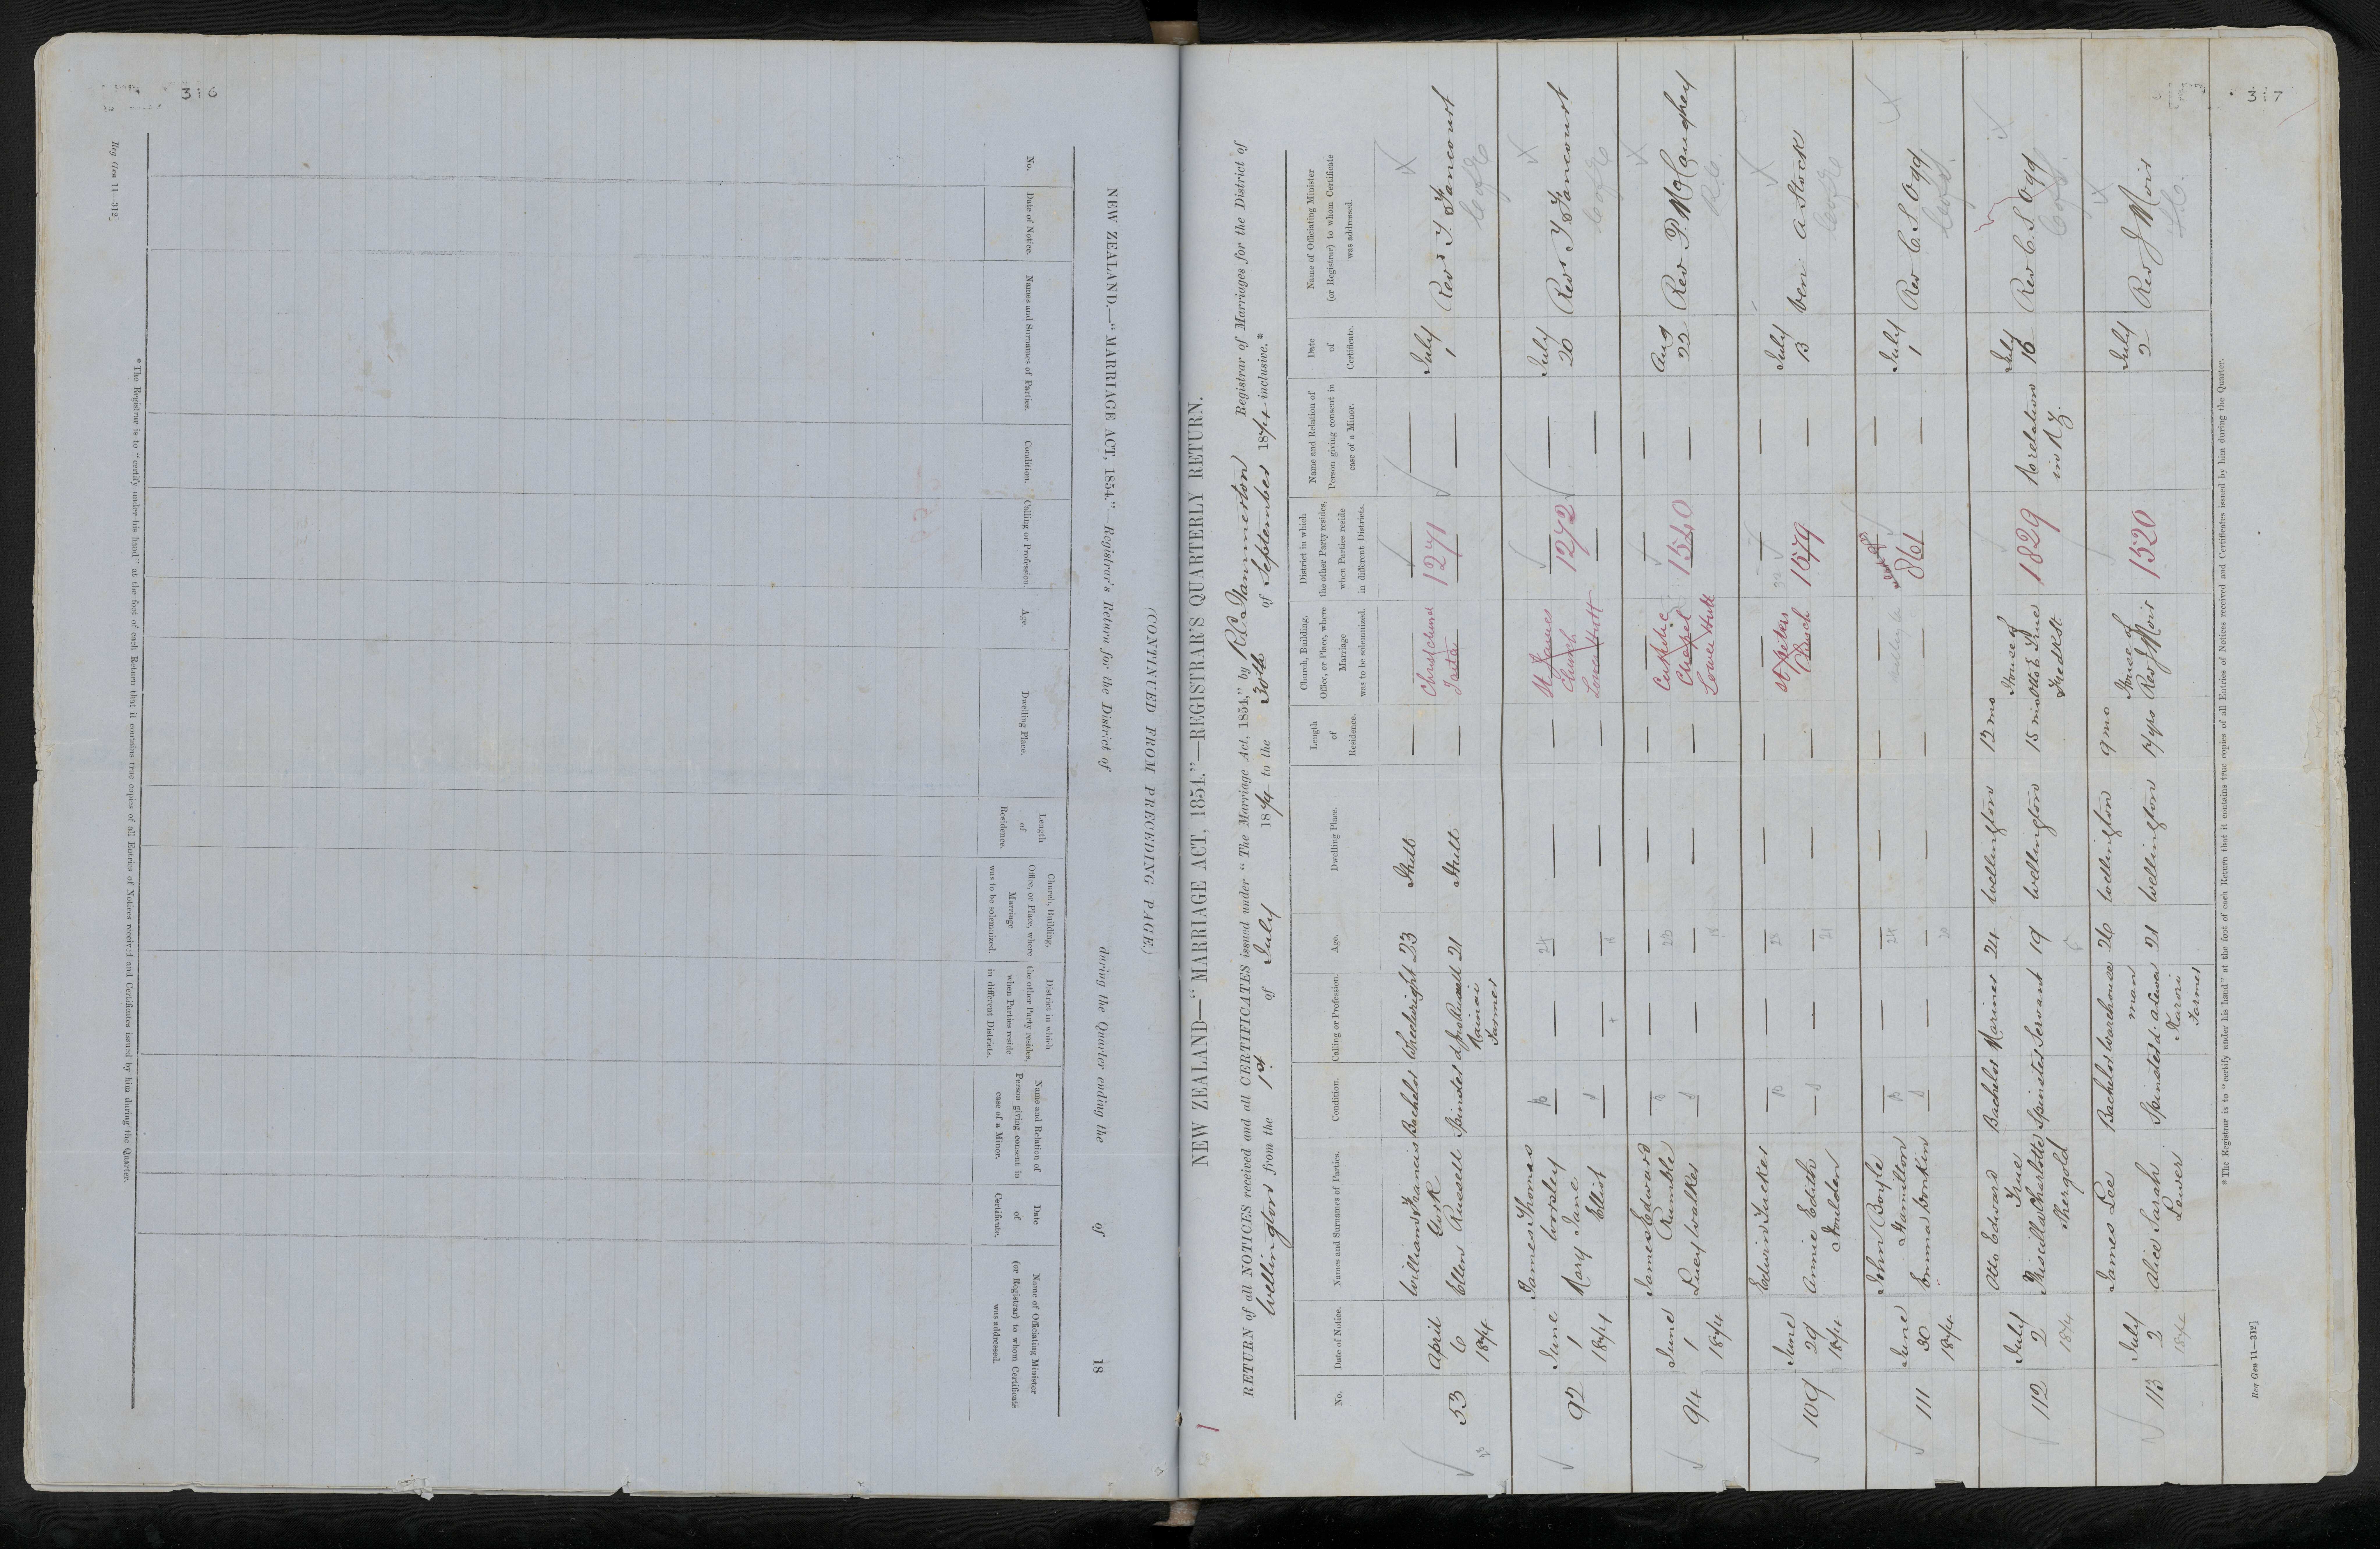 316
Reg Gen 11—312]
NEW ZEALAND.—"MARRIAGE ACT, 1854."—Registrar's Return for the District of during the Quarter ending the of 18
(CONTINUED FROM PRECEDING PAGE.)
No.
Date of Notice.
Names and Surnames of Parties.
Condition.
Calling or Profession.
Age.
Dwelling Place.
Length
of
Residence.
Church, Building,
Office, or Place, where
Marriage
was to be solemnized.
District in which
the other Party resides,
when Parties reside
in different Districts.
Name and Relation of
Person giving consent in
case of a Minor.
Date
of
Certificate.
Name of Officiating Minister
(or Registrar) to whom Certificate
was addressed.
*The Registrar is to "certify under his hand" at the foot of each Return that it contains true copies of all Entries of Notices received and Certificates issued by him during the Quarter.
317
NEW ZEALAND—"MARRIAGE ACT, 1854."—REGISTRAR'S QUARTERLY RETURN.
RETURN of all NOTICES received and all CERTIFICATES issued under "The Marriage Act, 1854," by Registrar of Marriages for the District of
Wellington from the 1st of July 1874 to the 30th of September 1874 inclusive.*
No.
Date of Notice.
Names and Surnames of Parties.
Condition.
Calling or Profession.
Age.
Dwelling Place.
Length
of
Residence.
Church, Building,
Office, or Place, where
Marriage
was to be solemnized.
District in which
the other Party resides,
when Parties reside
in different Districts.
Name and Relation of
Person giving consent in
case of a Minor.
Date
of
Certificate.
Name of Officiating Minister
(or Registrar) to whom Certificate
was addressed.
53
April
6
1874
William Francis
Cork
Ellen Russell
Bachelor
Spinster
Wheelwright
d Jno Russell
Wainui
Farmer
23
21
Hutt
Hutt
— —
Christchurch
Taita
1271
— —
July
1
Rev T. Fancourt
C of E
92
June
1
1874
James Thomas
Worsley
Mary Jane
Elliot
B
S
— —
24
— —
— —
St James
Church
Lower Hutt
1272
— —
July
20
Rev T Fancourt
C of E
94
June
1
1874
James Edward
Rumble
Lucy Walker
B
S
— —
— —
— —
Catholic
Chapel
Lower Hutt
1540
— —
Aug
22
Rev P. McCaughey
R.C.
109
June
29
1874
Edwin Tucker
Annie Edith
Houlder
B
S
— —
21
— —
— —
St Peters
Church
1579
— —
July
13
Ven: A Stock
C of E
111
June
30
1874
John Boyle
Hamilton
Emma Bonkin
B
S
— —
24
20
— —
— —
861
— —
July
1
Rev C. S. Ogg
112
July
2
1874
Otto Edward
True
Priscilla Charlotte
Shergold
Bachelor
Spinster
Mariner
Servant
24
19
Wellington
Wellington
12 mo
15 mo
House of
Otto E. True
1829
No relation
in N.Z.
July
16
Rev C. S. Ogg
113
July
2
1874
James Lee
Alice Sarah
Lewer
Bachelor
Spinster
Warehouse
man
Karori
Farmer
26
21
Wellington
Wellington
9 mo
17 yrs
House of
Rev J Moir
1520
July
2
Rev J Moir
*The Registrar is to "certify under his hand" at the foot of each Return that it contains true copies of all Entries of Notices received and Certificates issued by him during the Quarter.
Reg Gen 11—312]